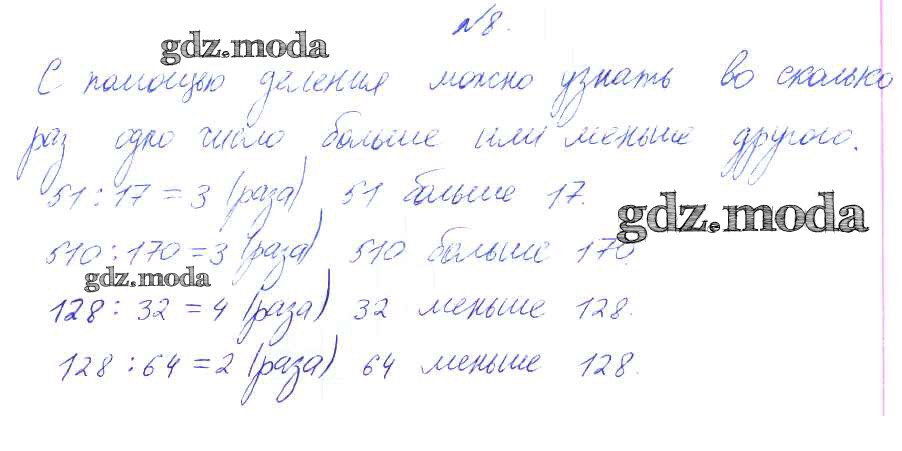 №8.
gdz.moda
С помощью деления можно узнать во сколько
раз одно число больше или меньше другого.
51 : 17 = 3 (раза) 51 больше 17.
gdz.moda
510 : 170 = 3 (раза) 510 больше 170.
gdz.moda
128 : 32 = 4 (раза) 32 меньше 128.
128 : 64 = 2 (раза) 64 меньше 128.